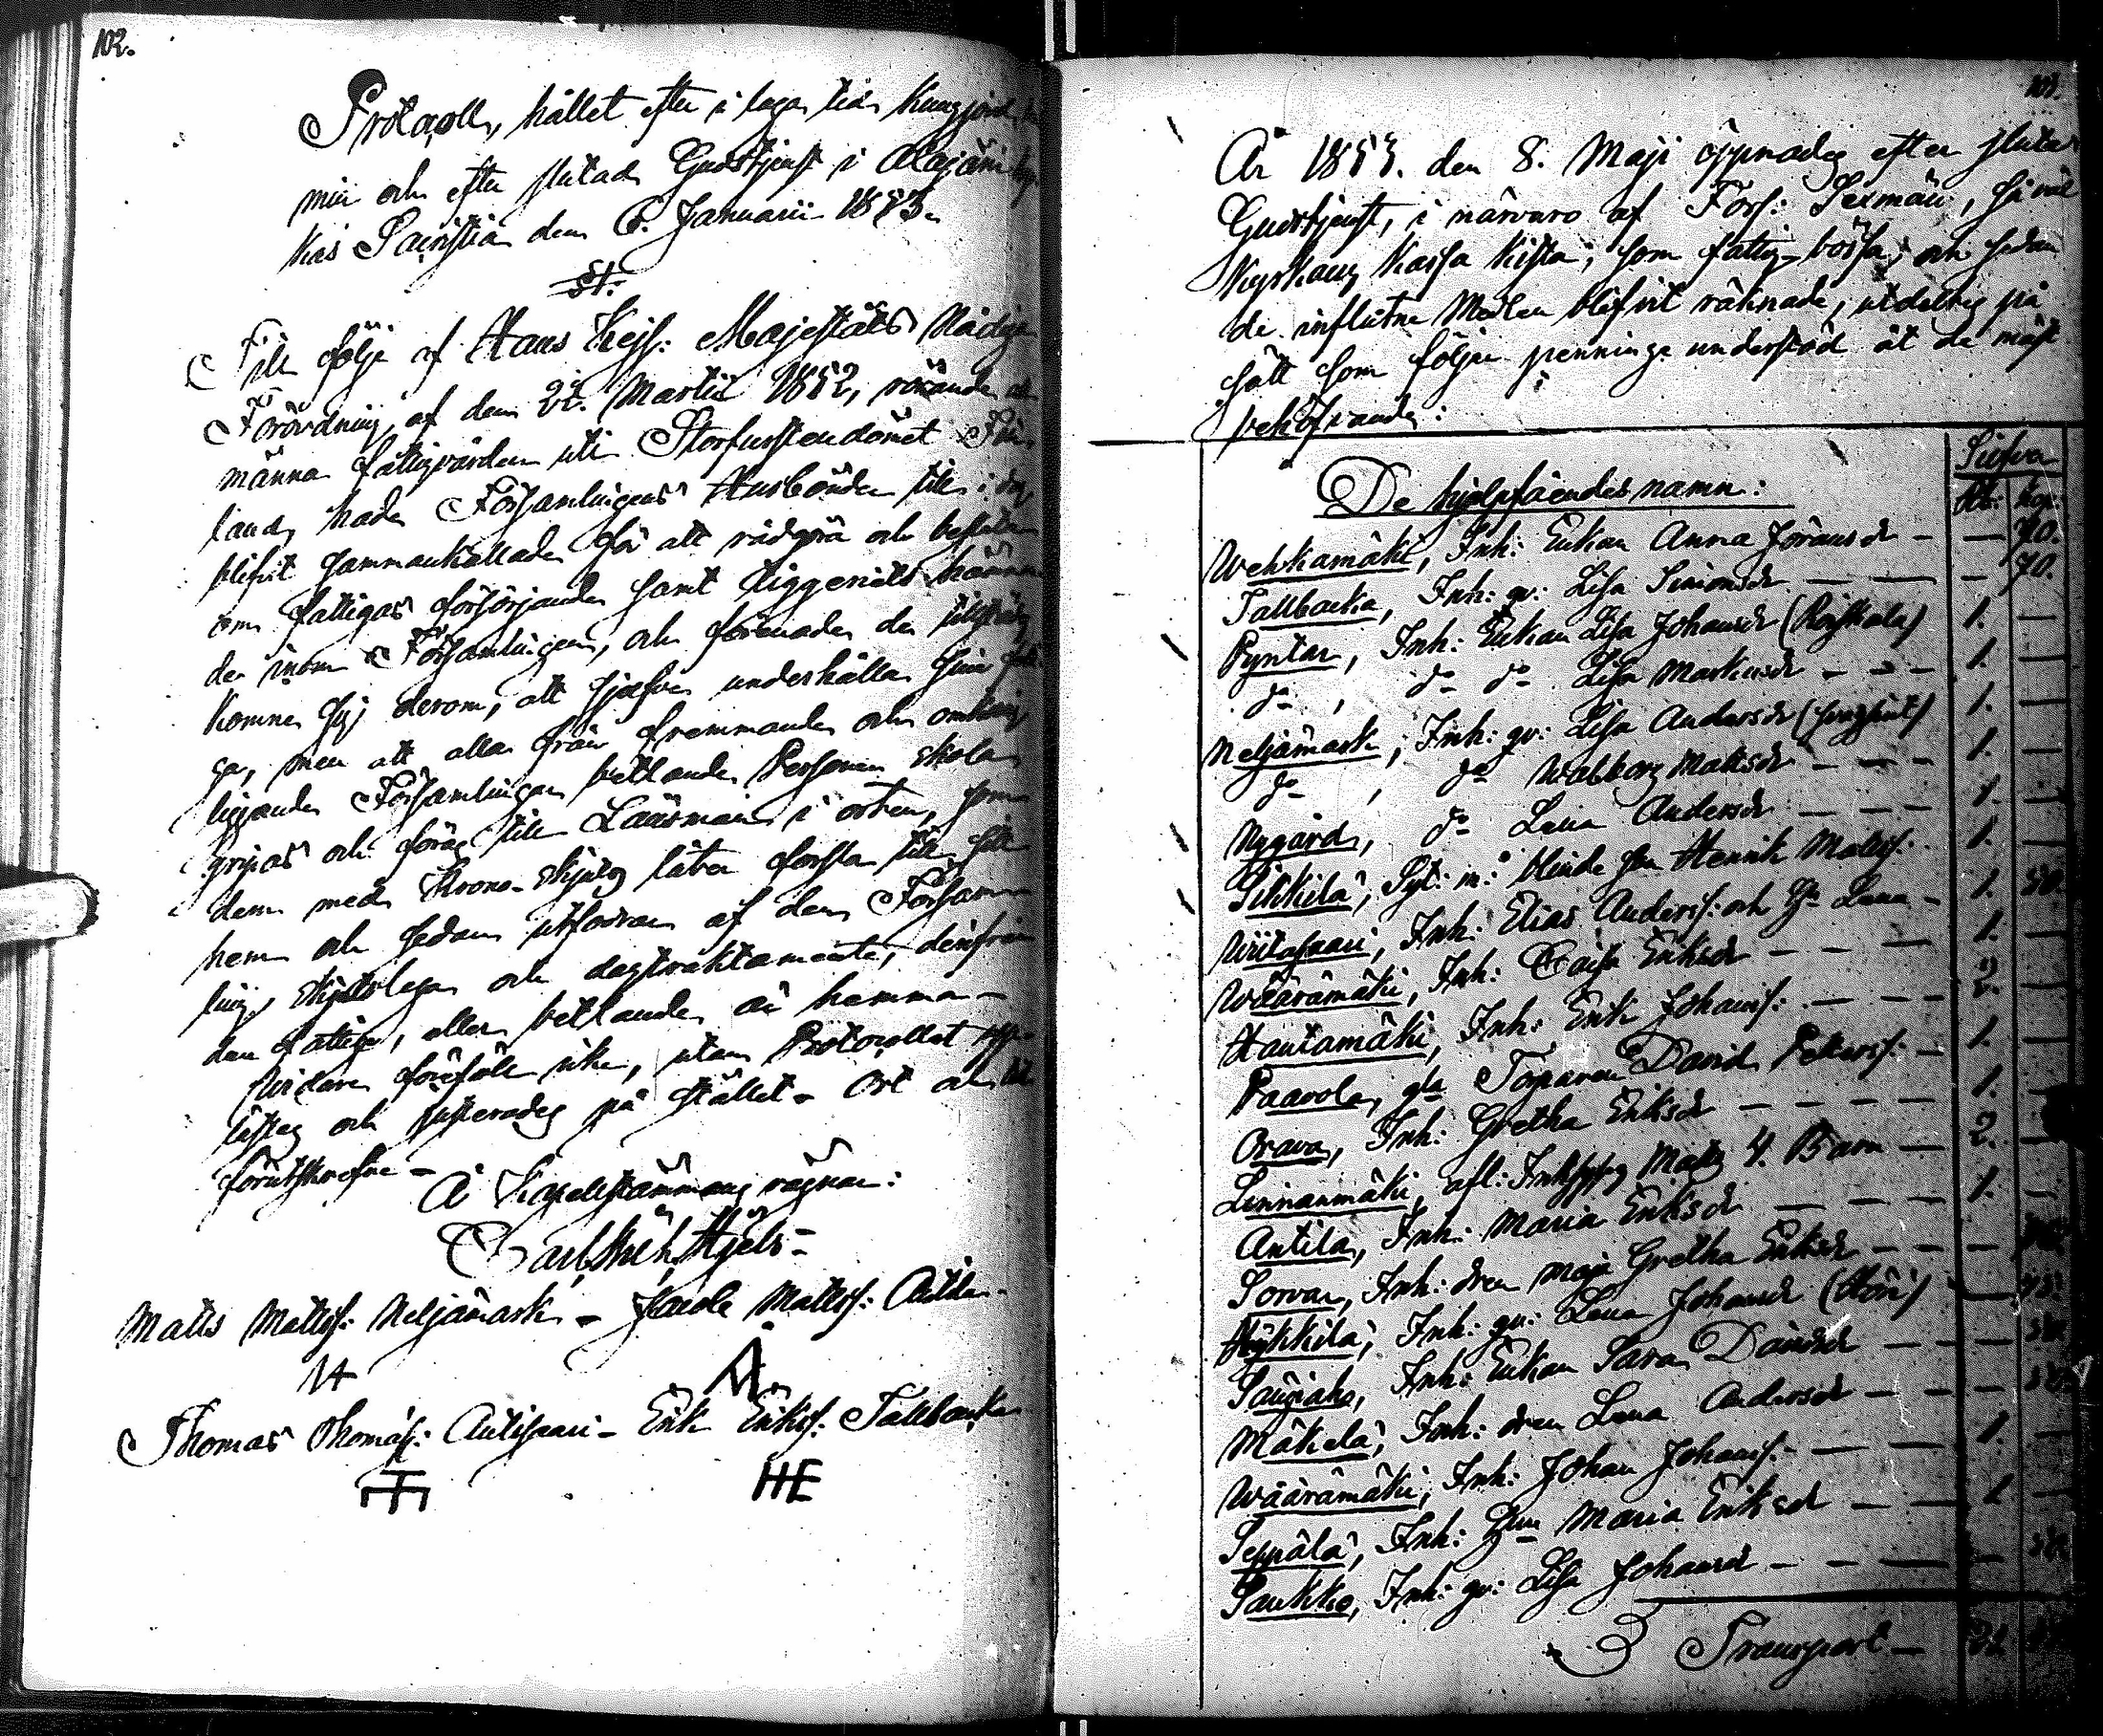 102.
Protocoll, hållet efter i laga tid kungjord
min och efter slutad Gudstjenst i Alajärvi
kas Sacristia den 6. Januarii 1853.
§1.
Till följe af Hans Kejs: Majestäts Nådiga
Förordning af den 22. Martii 1852, rörande all
männa fattigvården uti Storfurstendömet Fin
land, hade Församlingens Husbönder till i dag
blifvit sammankallade för att rådgöra och besluta
om fattigas försörjande samt tiggeriets hämman
de inom Församlingen, och förenade de
komne sig derom, att sjelfve underhålla sine fatti
ga, men att alla från fremmande och omkring
liggande Församlingar bettlande Personer skola
gripas och föras till Länsman i orten, som
dem med Krono-skjuts låter forsla till sitt
hem och sedan utfodrar af den Försam
ling, skjutslega och dagtraktamente, derifrån
den fattige, eller bettlande är hemma-
Vidare förefoll icke, utan Protocollet upp-
lästes och justerades på stället - Ort och tid
förutskrefne -
Å Kapellstämmans vägnar:
Carl Hjelt-
Matts Mattss: Neljämark - Jacob Mattss: Antila-
Thomas Thomass: Autisaari - Erik Erikss: Tallbacka
HE
101.
År 1853. den 8. Maji öppnades efter slutad
Gudstjenst, i närvaro af Förs: Sexmän, så väl
Kyrkans Kassa Kista, som fattig-bössa; och sedan
de influtne Medlen blifvit räknade, utdeltes på
sätt som följer penninge understöd åt de mäst
behöfvande:
De hjelpfåendes namn:
Silfver
Rb: kop:
Wehkamäki, Inh: Enkan Anna Göransdr - — 70.
Tallbacka, Inh: qv: Lisa Simonsdr — — 70.
Pyntar, Inh: Enkan Lisa Johansdr (Roiskala) 1. —
do , do do Lisa Markusdr - - - 1. —
Neljämark, Inh: qv: Lisa Andersdr 1. —
do , do Walborg Mattsdr - - - 1. —
Nygård, do Lena Andersdr — — 1. —
Sikkilä, Syt: m: blinde son Henrik Mattss: 1. —
Wiitasaari, Inh: Elias Anderss: och Hu Lena - 1. 50.
Wäärämäki, Inh: Caisa Eriksdr - — — 1. —
Hautamäki, Inh: Erik Johanss: — — 2. —
Paavola, gla Torparen David Petterss: — 1. —
Orava, Inh: Gretha Eriksdr — — — 1. —
Linnanmäki, afl: Matts 4. Barn — 2. —
Antila, Inh: Maria Eriksdr — — — 1. —
Sorvar, Inh: dren Maja Gretha Eriksdr — — —
Hyhkilä, Inh: qv: Lena Johansdr —
Saunaho, Inh: Enkan Sara Danielsdr — — —
Mäkelä, Inh: dren Lena Andersdr — — —
Wäärämäki, Inh: Johan Johanss: — — 1. —
Seppälä, Inh: Maria Eriksdr — — 1 —
Saukko, Inh: qv: Lisa Johansdr — — —
Transport —